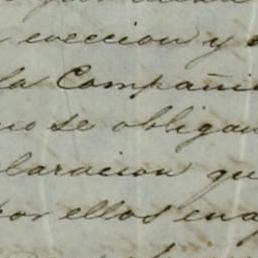 eveccion y
la Compañi
no se obligan
laracion qu
por ellos ena